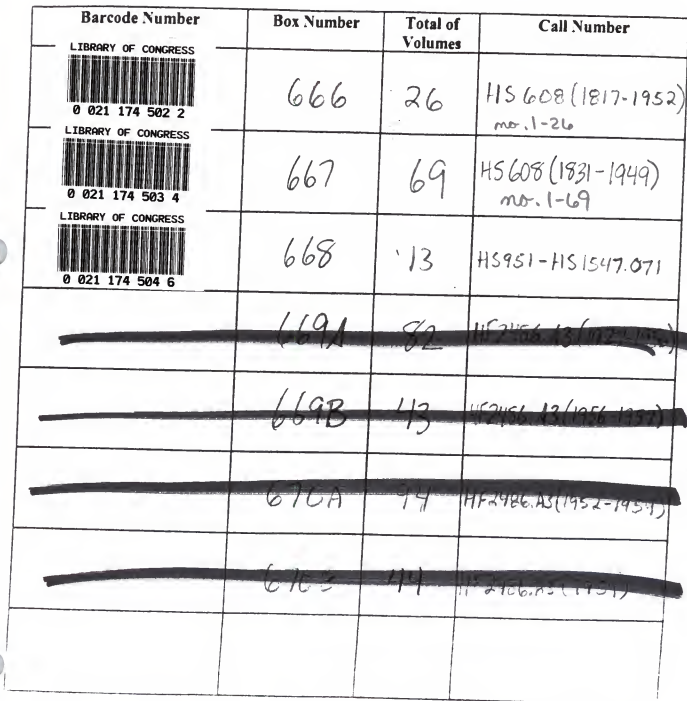 Barcode Number Box Number Total of Volumes Call Number
LIBRARY OF CONGRESS
0 021 174 502 2
666 26 HS 608 (1817-1952)
no. 1-26
LIBRARY OF CONGRESS
0 021 174 503 4
667 69 HS 608 (1831-1949)
no. 1-69
LIBRARY OF CONGRESS
0 021 174 504 6
668 13 HS951-HS1547.071
669A 82
669B 43 HF2456.A3(1956-1957)
670A 94
44